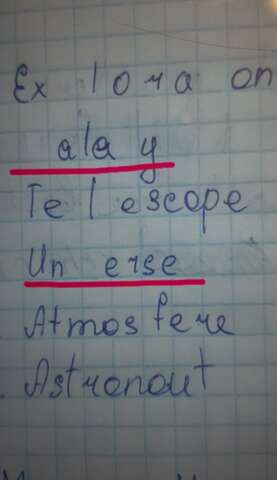 Ex lora on
ala y
Telescope
Un erse
Atmosfere
Astronout